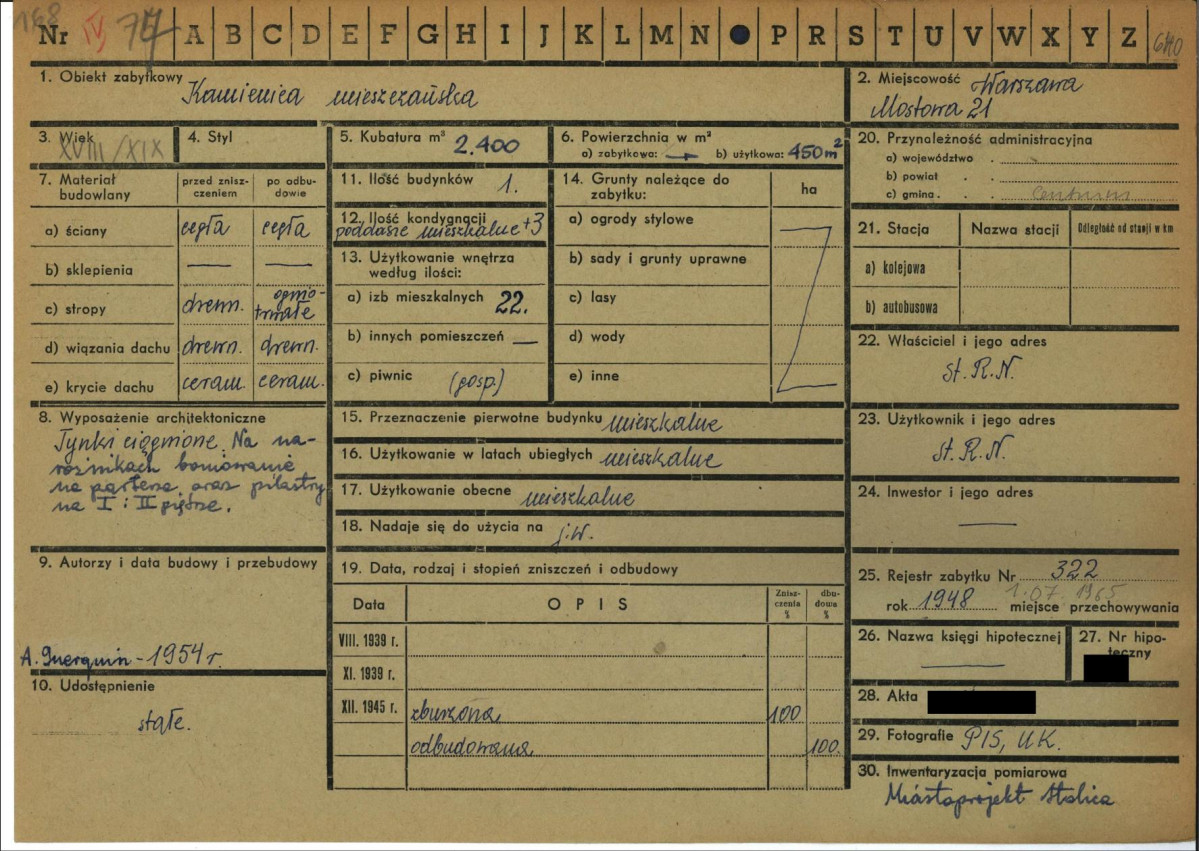 168
Nr IV 77 A B C D E F G H I J K L M N P R S T U V W X Y Z 640
1. Obiekt zabytkowy Kamienica mieszczańska
2. Miejscowość Warszawa
Mostowa 21
3. Wiek XVIII/XIX
4. Styl
5. Kubatura m³ 2.400
6. Powierzchnia w m²
a) zabytkowa: — b) użytkowa: 450 m²
7. Materiał budowlany
przed zniszczeniem
po odbudowie
a) ściany cegła cegła
b) sklepienia — —
c) stropy drewn. ognio-trwałe
d) wiązania dachu drewn. drewn.
e) krycie dachu ceram. ceram.
8. Wyposażenie architektoniczne
Tynki ciągnione. Na na-
rożnikach boniowanie
na parterze oraz pilastry
na I i II piętrze.
9. Autorzy i data budowy i przebudowy
A. Guerquin - 1954 r.
10. Udostępnienie
stałe.
11. Ilość budynków 1.
12. Ilość kondygnacji
poddasze mieszkalne +3
13. Użytkowanie wnętrza
według ilości:
a) izb mieszkalnych 22.
b) innych pomieszczeń —
c) piwnic (gosp.)
14. Grunty należące do
zabytku:
ha
a) ogrody stylowe
b) sady i grunty uprawne
c) lasy
d) wody
e) inne
15. Przeznaczenie pierwotne budynku mieszkalne
16. Użytkowanie w latach ubiegłych mieszkalne
17. Użytkowanie obecne mieszkalne
18. Nadaje się do użycia na j.w.
19. Data, rodzaj i stopień zniszczeń i odbudowy
Data OPIS Znisz-czenia % dbu-dowa %
VIII. 1939 r.
XI. 1939 r.
XII. 1945 r. zburzona 100
odbudowana 100.
20. Przynależność administracyjna
a) województwo
b) powiat
c) gmina Centrum
21. Stacja Nazwa stacji Odległość od stacji w km
a) kolejowa
b) autobusowa
22. Właściciel i jego adres
St. R.N.
23. Użytkownik i jego adres
St. R.N.
24. Inwestor i jego adres
—
25. Rejestr zabytku Nr 322
1.07.1965
rok 1948 miejsce przechowywania
26. Nazwa księgi hipotecznej
—
27. Nr hipo-
teczny
28. Akta
29. Fotografie PIS, UK.
30. Inwentaryzacja pomiarowa
Miastoprojekt Stolica